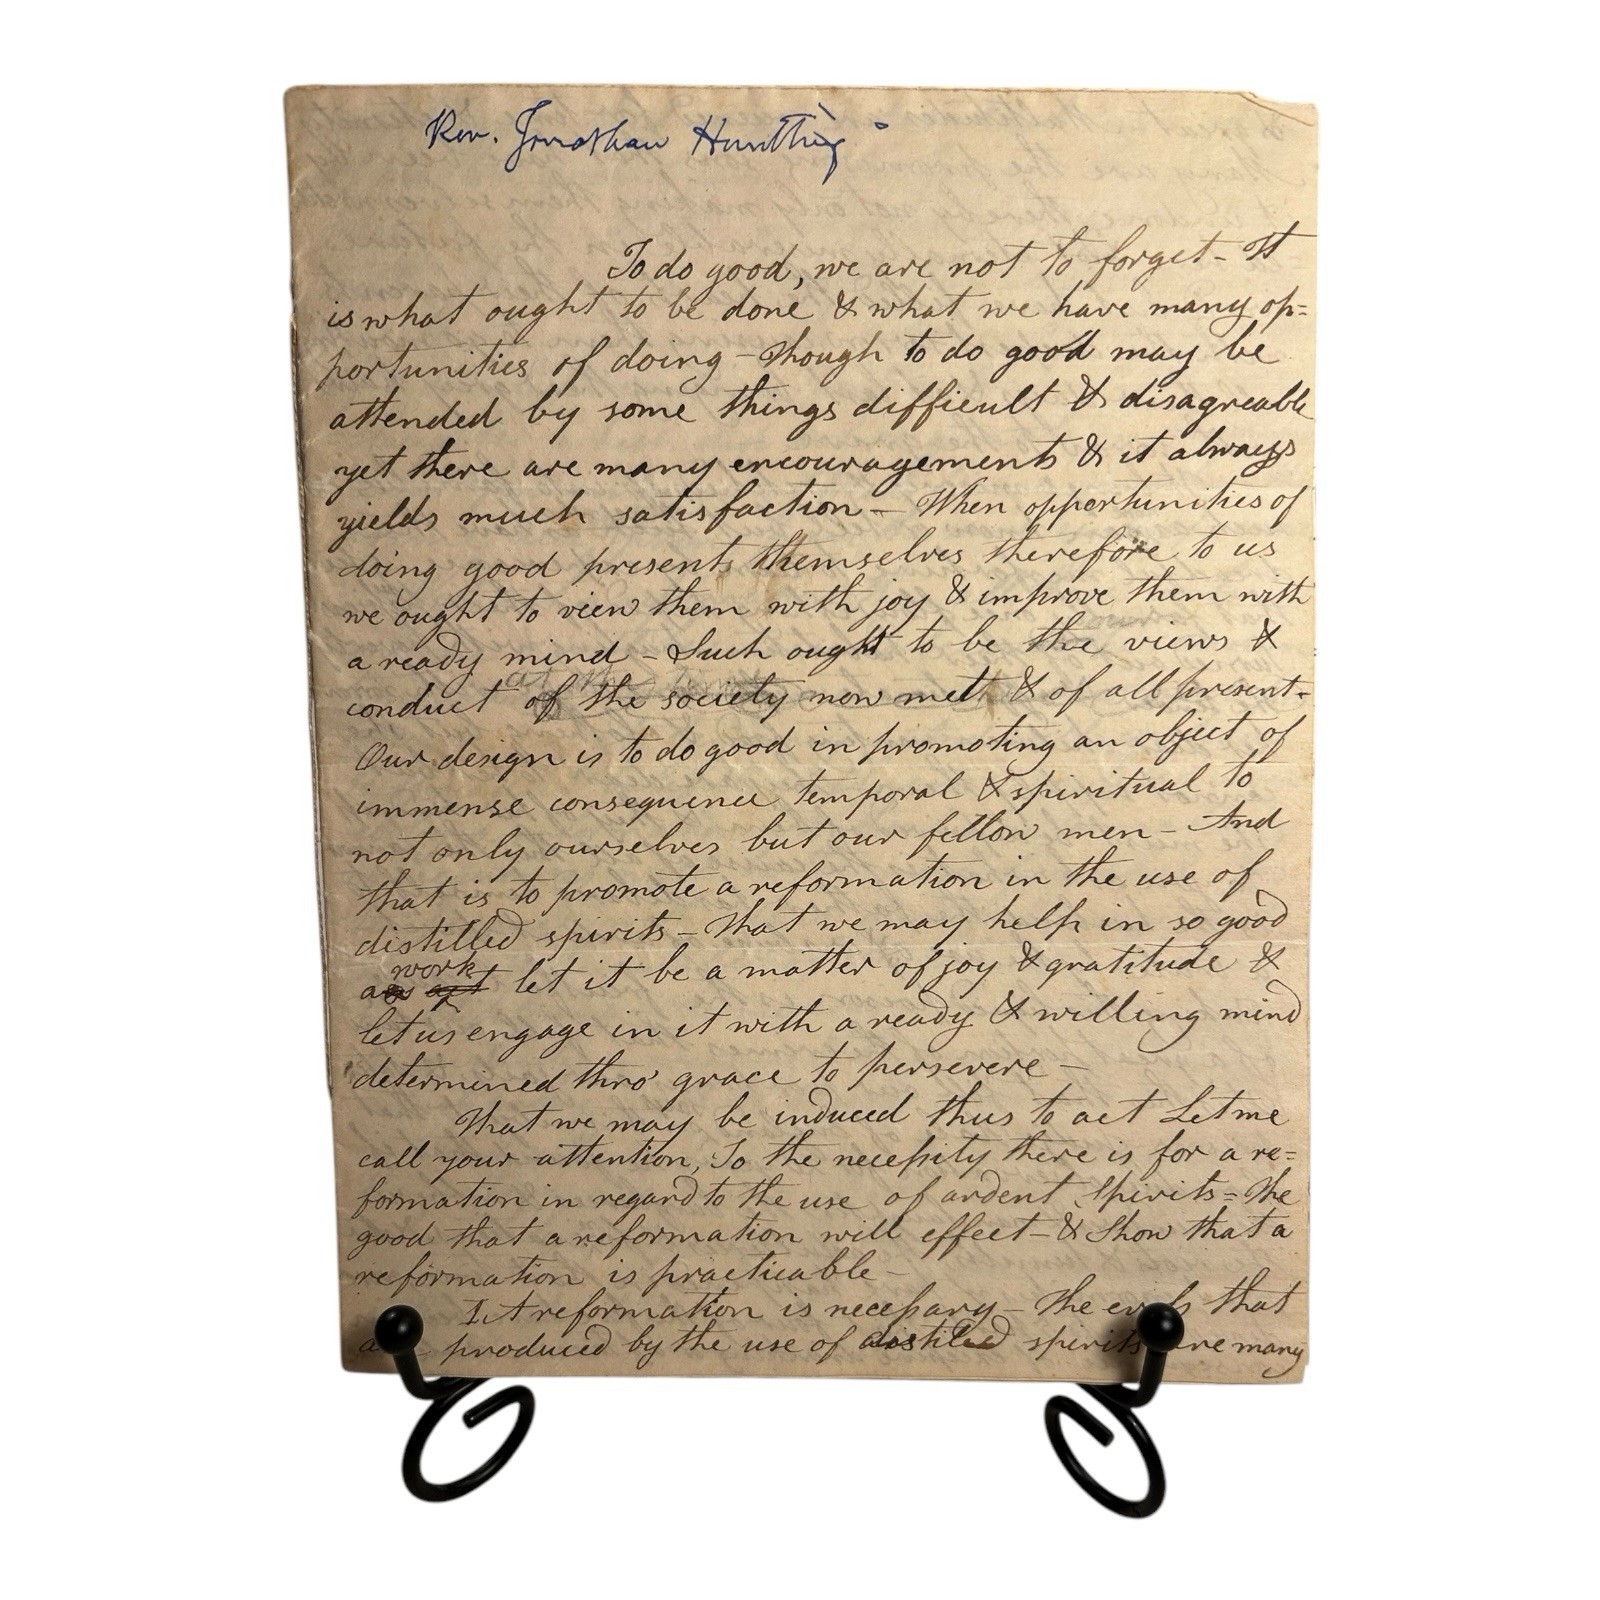 Rev. Jonathan Huntting
To do good, we are not to forget - It
is what ought to be done & what we have many op=
portunities of doing - Though to do good may be
attended by some things difficult & disagreable
yet there are many encouragements & it always
yields much satisfaction - When opportunities of
doing good present themselves therefore to us
we ought to view them with joy & improve them with
a ready mind - Such ought to be the views &
at this time
conduct of the society now met & of all present -
Our design is to do good in promoting an object of
immense consequence temporal & spiritual to
not only ourselves but our fellow men - And
that is to promote a reformation in the use of
distilled spirits - That we may help in so good
work
a act let it be a matter of joy & gratitude &
let us engage in it with a ready & willing mind
determined thro' grace to persevere -
That we may be induced thus to act Let me
call your attention, To the necessity there is for a re=
formation in regard to the use of ardent spirits = The
good that a reformation will effect - & Show that a
reformation is practicable -
I. A reformation is necessary - The evils that
produced by the use of distilled spirits are many